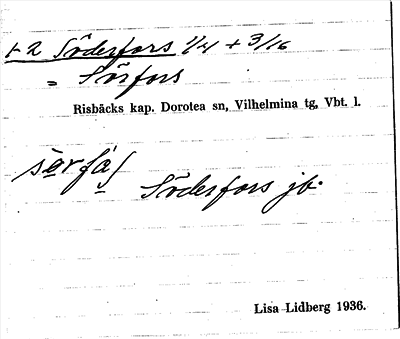 1-2 Söderfors 1/4 + 3/16
= Sörfors
Risbäcks kap. Dorotea sn, Vilhelmina tg, Vbt. l.
Söderfors jb.
Lisa Lidberg 1936.